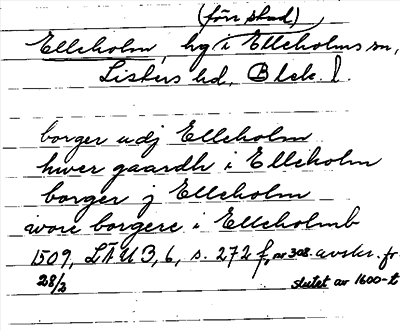 (förr stad)
Elleholm, hg i Elleholms sn,
Listers hd, Blek. l.
borger udj Elleholm
hwer gaardh i Elleholm
borger j Elleholm
wore borgere i Elleholmb
1509, LÅU 3, 6, s. 272 f, nr 308. avskr. fr.
28/2 slutet av 1600-t